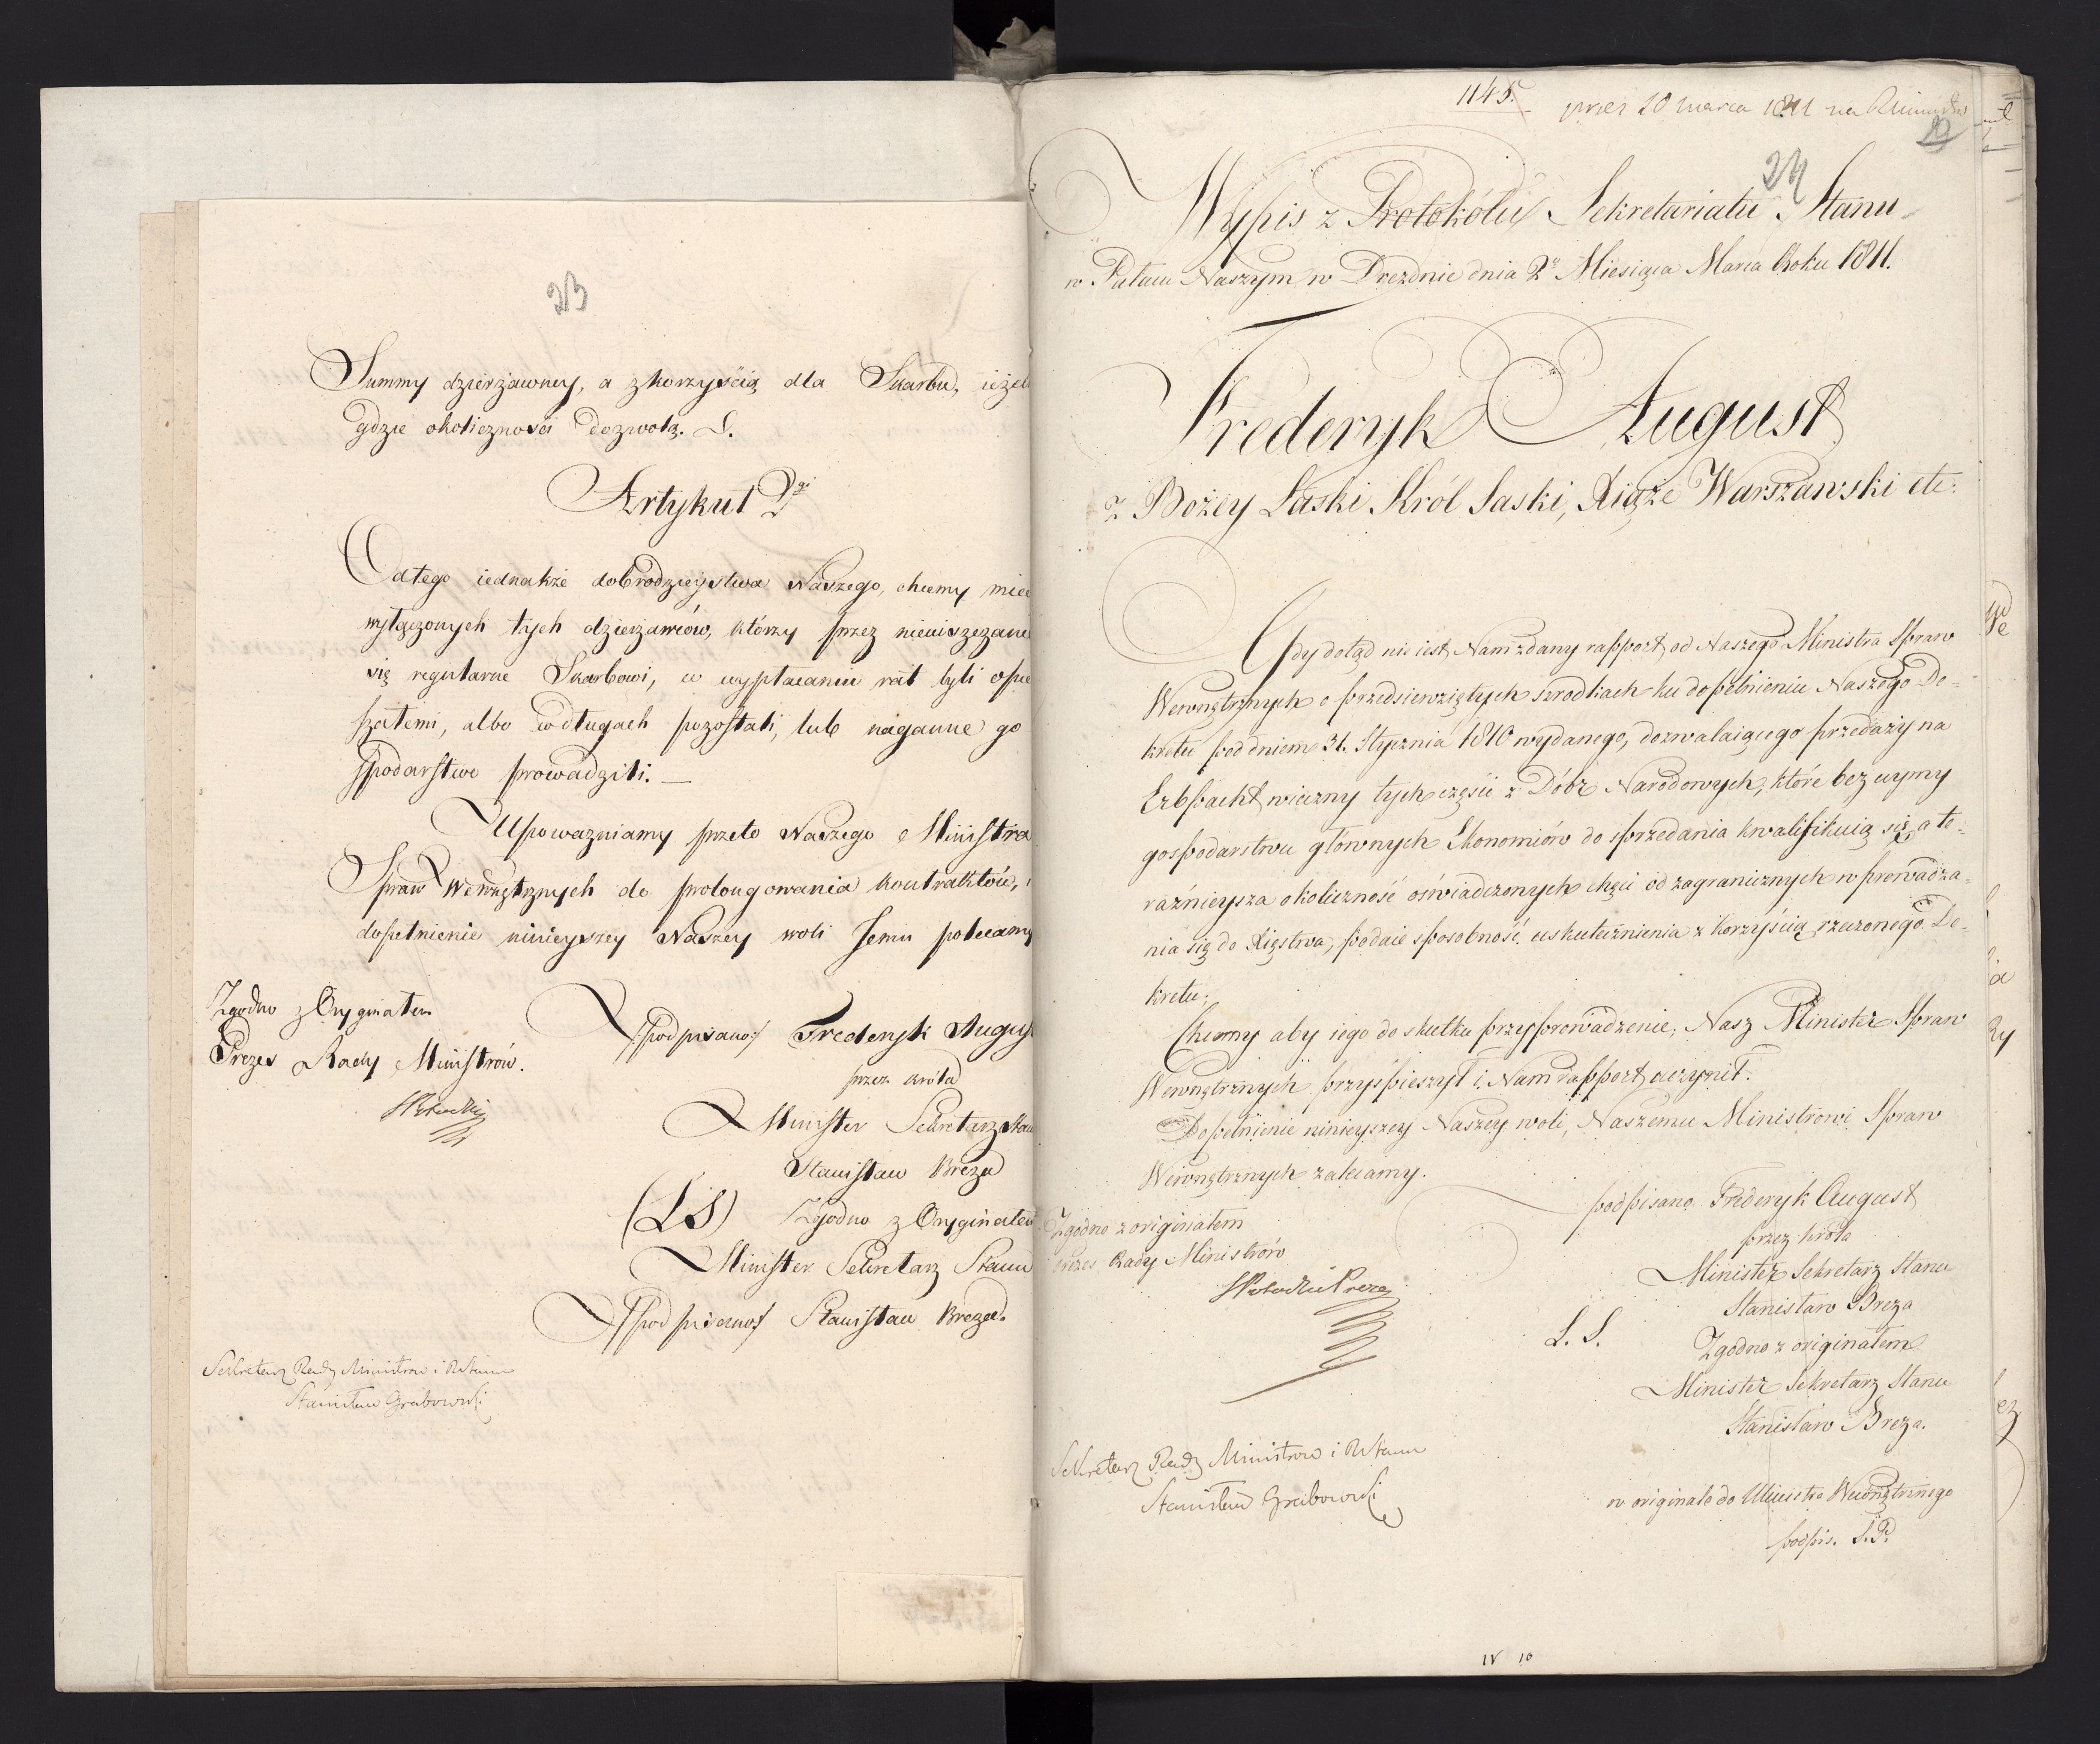 23
Summy dzierżawney, a zkorzyścią dla Skarbu, ieżel
gdzie okoliczności dozwolą.
Artykuł 2gi
Odtego iednakże dobrodzieystwa Naszego, chcemy mieć
wyłączonych tych dzierżawców, którzy przez nieuiszczanie
się regularne Skarbowi, w wypłacaniu rat byli opie
szałemi, albo wdługach pozostali, lub naganne go
spodarstwo prowadzili. —
Upoważniamy przeto Naszego Ministra
Spraw Wewnętrznych do prolongowania kontraktów,
dopełnienie ninieyszey Naszey woli Jemu polecamy
Zgodno z Oryginałem
Prezes Rady Ministrów.
/:podpisano:/ Frederyk Augus
przez króla
Minister Sekretarz Stau
Stanisław Breza
(LS) Zgodno z Oryginałem
Minister Sekretarz Stanu
/:podpisano:/ Stanisław Breza.
Sekretarz Rady Ministrow i R Stanu
Stanisław Grabowski
1145.
przez 20 marca 1811 na
24
Wypis z Protokółu Sekretariatu Stanu
w Pałacu Naszym w Dreźnie dnia 2o Miesiąca Marca Roku 1811.
Frederyk August
z Bożey Łaski Król Saski, Xiąże Warszawski etc:
Gdy dotąd nie iest Nam zdany rapport od Naszego Ministra Spraw
Wewnętrznych o przedsięwziętych srodkach ku dopełnieniu Naszego De-
kretu pod dniem 31. Stycznia 1810 wydanego, dozwalaiącego przedaży na
Erbpacht wieczny tych części z Dóbr Narodowych, które bez uymy
gospodarstwu głównych Ekonomiów do sprzedania kwalifikuią się, a te-
raźnieysza okoliczność oświadczonych chęci od zagranicznych wprowadza-
nia się do Xięstwa, podaie sposobność uskutecznienia z korzyścią rzeczonego De-
kretu;
Chcemy aby iego do skutku przyprowadzenie, Nasz Minister Spraw
Wewnętrznych przyspieszył i Nam rapport uczynił.
Dopełnienie ninieyszey Naszey woli, Naszemu Ministrowi Spraw
Wewnętrznych zalecamy.
podpisano Frederyk August
przez króla
Zgodno z originałem
Prezes Rady Ministrów
Minister Sekretarz Stanu
Stanisław Breza
L. S.
Zgodno z originałem
Minister Sekretarz Stanu
Stanisław Breza.
Sekretarz Rady Ministrow i R Stanu
Stanisław Grabowski
w originale do Ministra Wewnętrznego
podpis. S. P.
IV 10